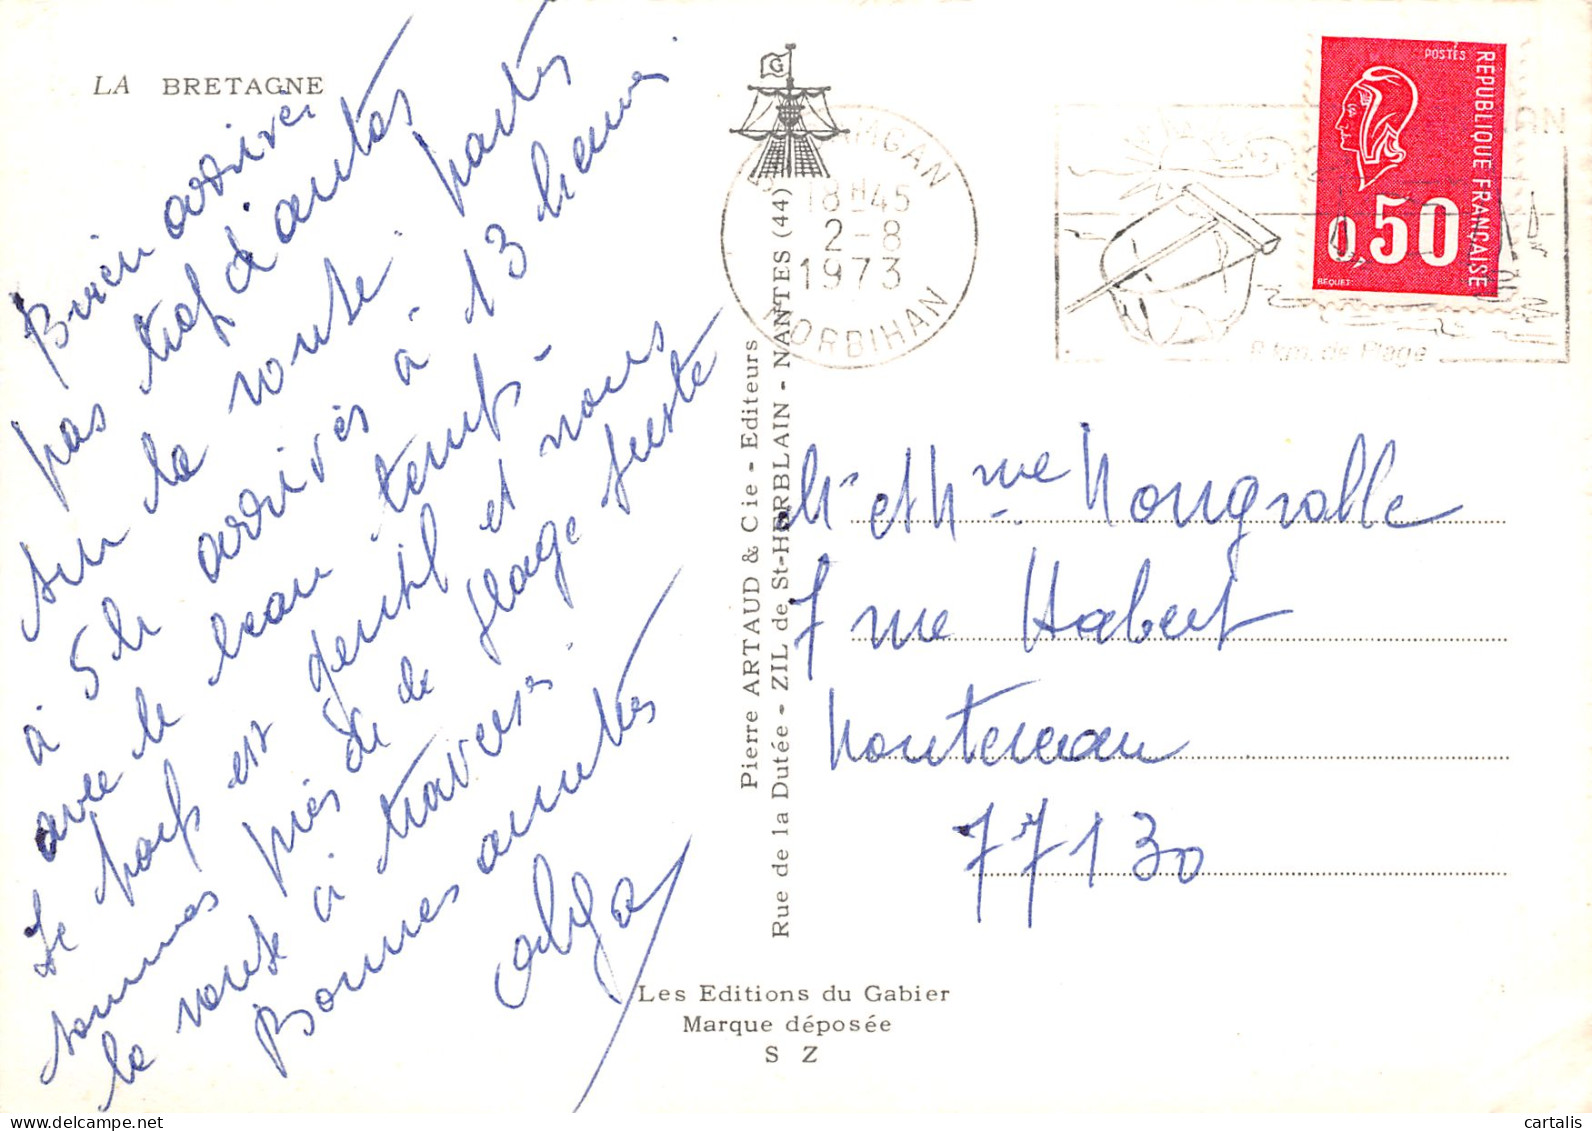 LA BRETAGNE
Bien arrivés
pas trop d'autos
sur la route. partés
à 5h arrivés à 13 heures
avec le beau temps -
Le pays est gentil et nous
sommes près de la plage juste
la route à traverser.
Bonnes amitiés
Olga
G
Pierre ARTAUD & Cie - Editeurs
Rue de la Dutée - ZIL de St-HERBLAIN - NANTES (44)
18H45
2-8
1973
MORBIHAN
km. de Plage
POSTES
REPUBLIQUE FRANÇAISE
0,50
BEQUET
Mr et Mme
7 rue Habert
Montereau
77130
Les Editions du Gabier
Marque déposée
S Z
cartalis